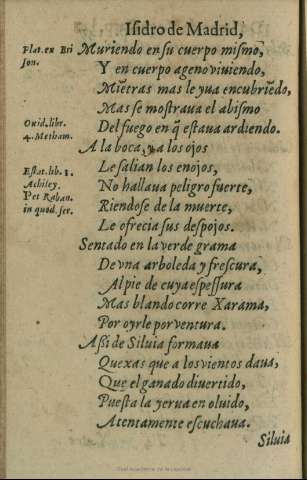 Isidro de Madrid,
Plat. ex Bri
son.
Muriendo en su cuerpo mismo,
Y en cuerpo ageno viuiendo,
Miẽtras mas le yua encubriẽdo,
Mas se mostraua el abismo
Ouid. libr.
4. Metham.
Del fuego en q̃ estaua ardiendo.
A la boca, y a los ojos
Estat. lib. 1.
Achiley.
Pet Raban.
in quod. ser.
Le salian los enojos,
No hallaua peligro fuerte,
Riendose de la muerte,
Le ofrecia sus despojos.
Sentado en la verde grama
De vna arboleda y frescura,
Al pie de cuya espessura
Mas blando corre Xarama,
Por oyrle por ventura.
Assi de Siluia formaua
Quexas que a los vientos daua,
Que el ganado diuertido,
Puesta la yerua en oluido,
Atentamente escuchaua.
Siluia